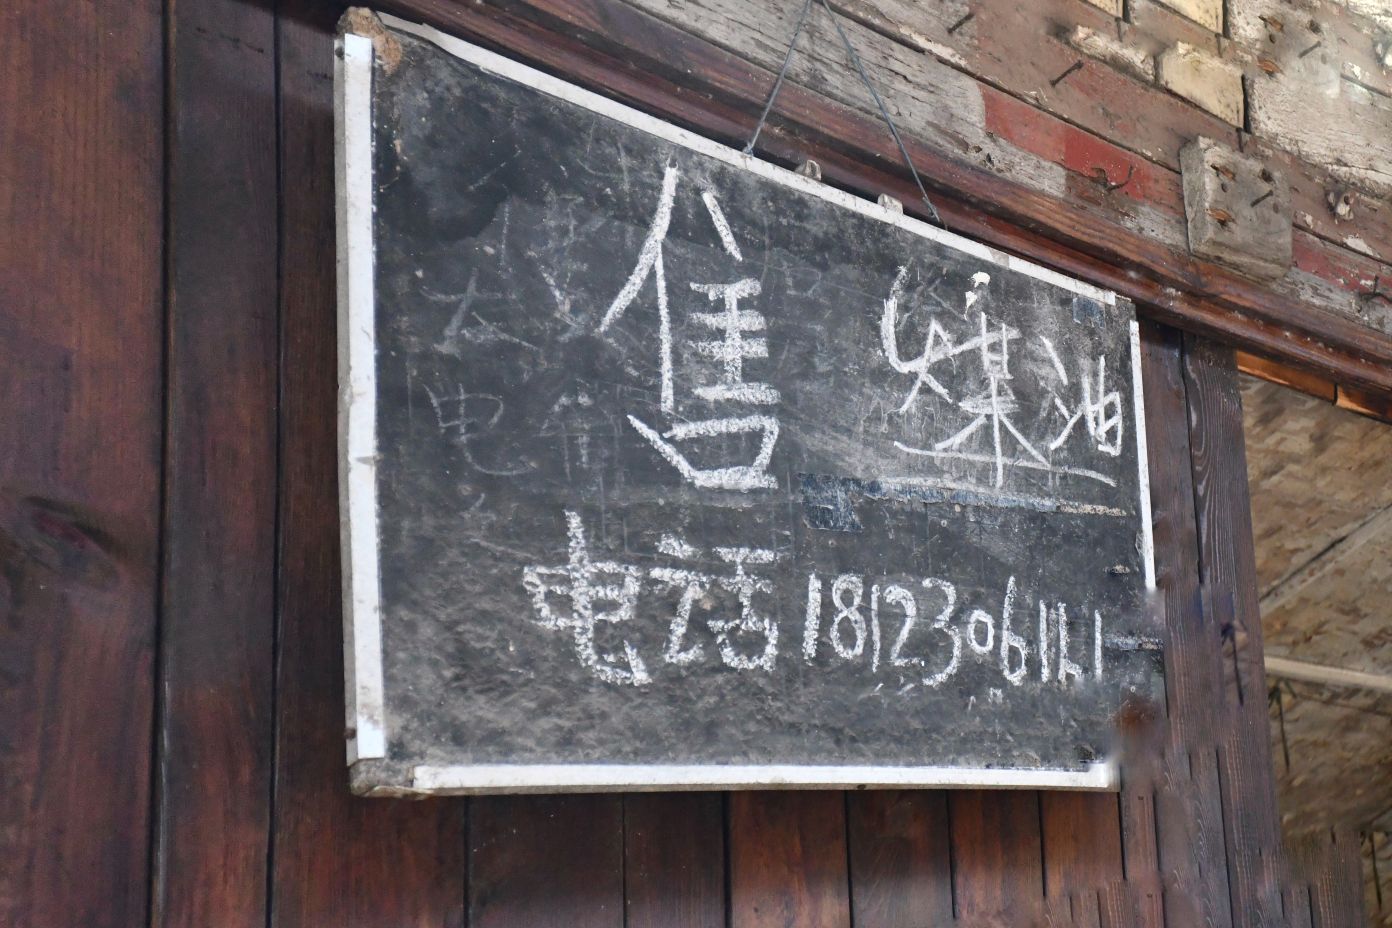 售 煤油
电话 18123061141